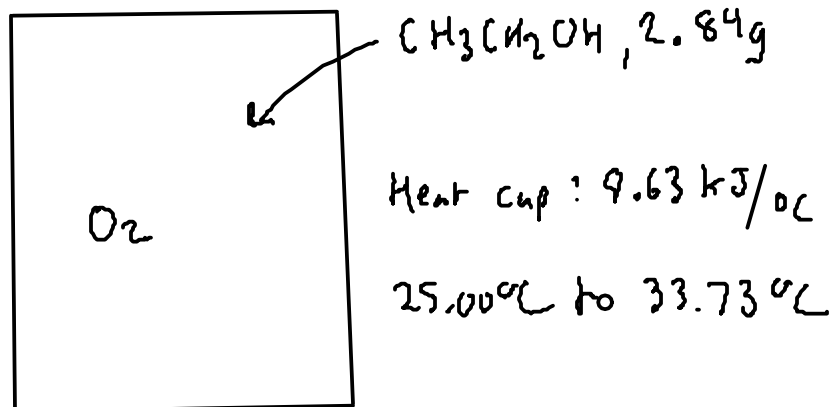 CH3CH2OH, 2.84g
Heat cap: 9.63 kJ/°C
O2
25.00°C to 33.73°C